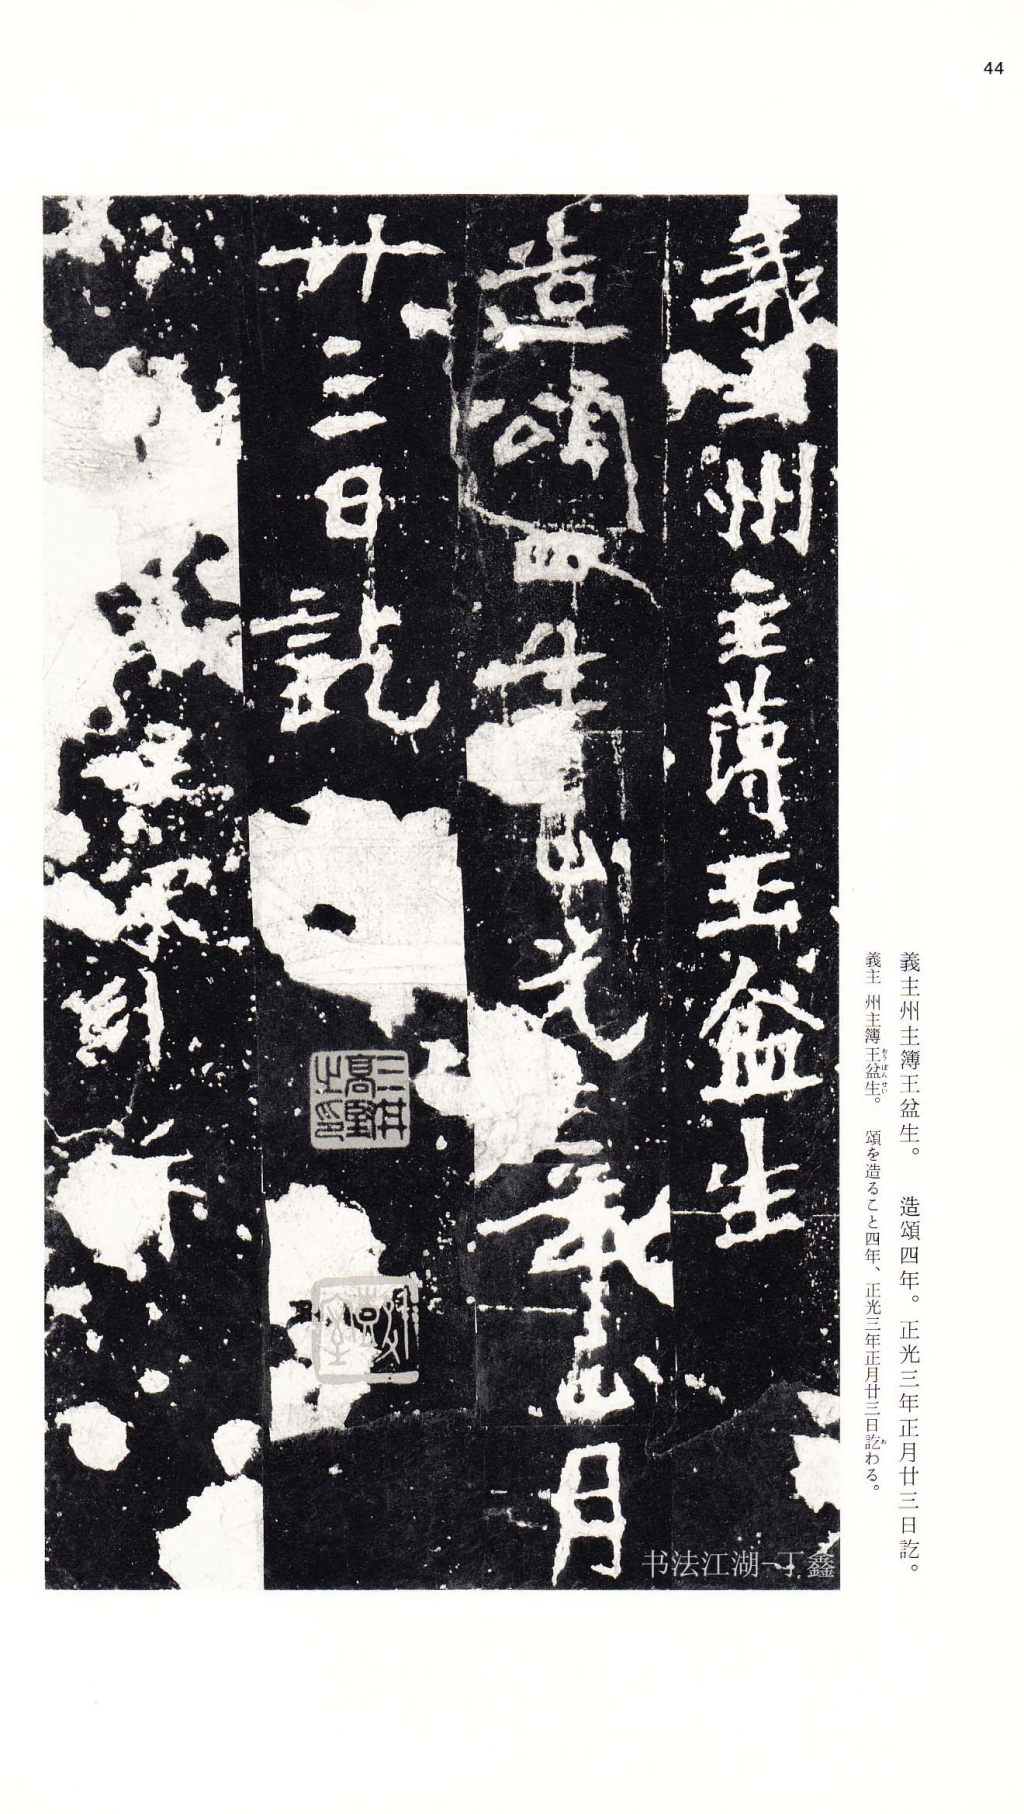 44
義主州主簿王盆生。 造頌四年。正光三年正月廿三日訖。
義主 州主簿王盆生。 頌を造ること四年、正光三年正月廿三日訖わる。
おうぼんせい
お
義主州主薄王盆生
造頌四年正光三年正月
廿三日訖
三井高堅之印
刻
书法江湖-丁鑫